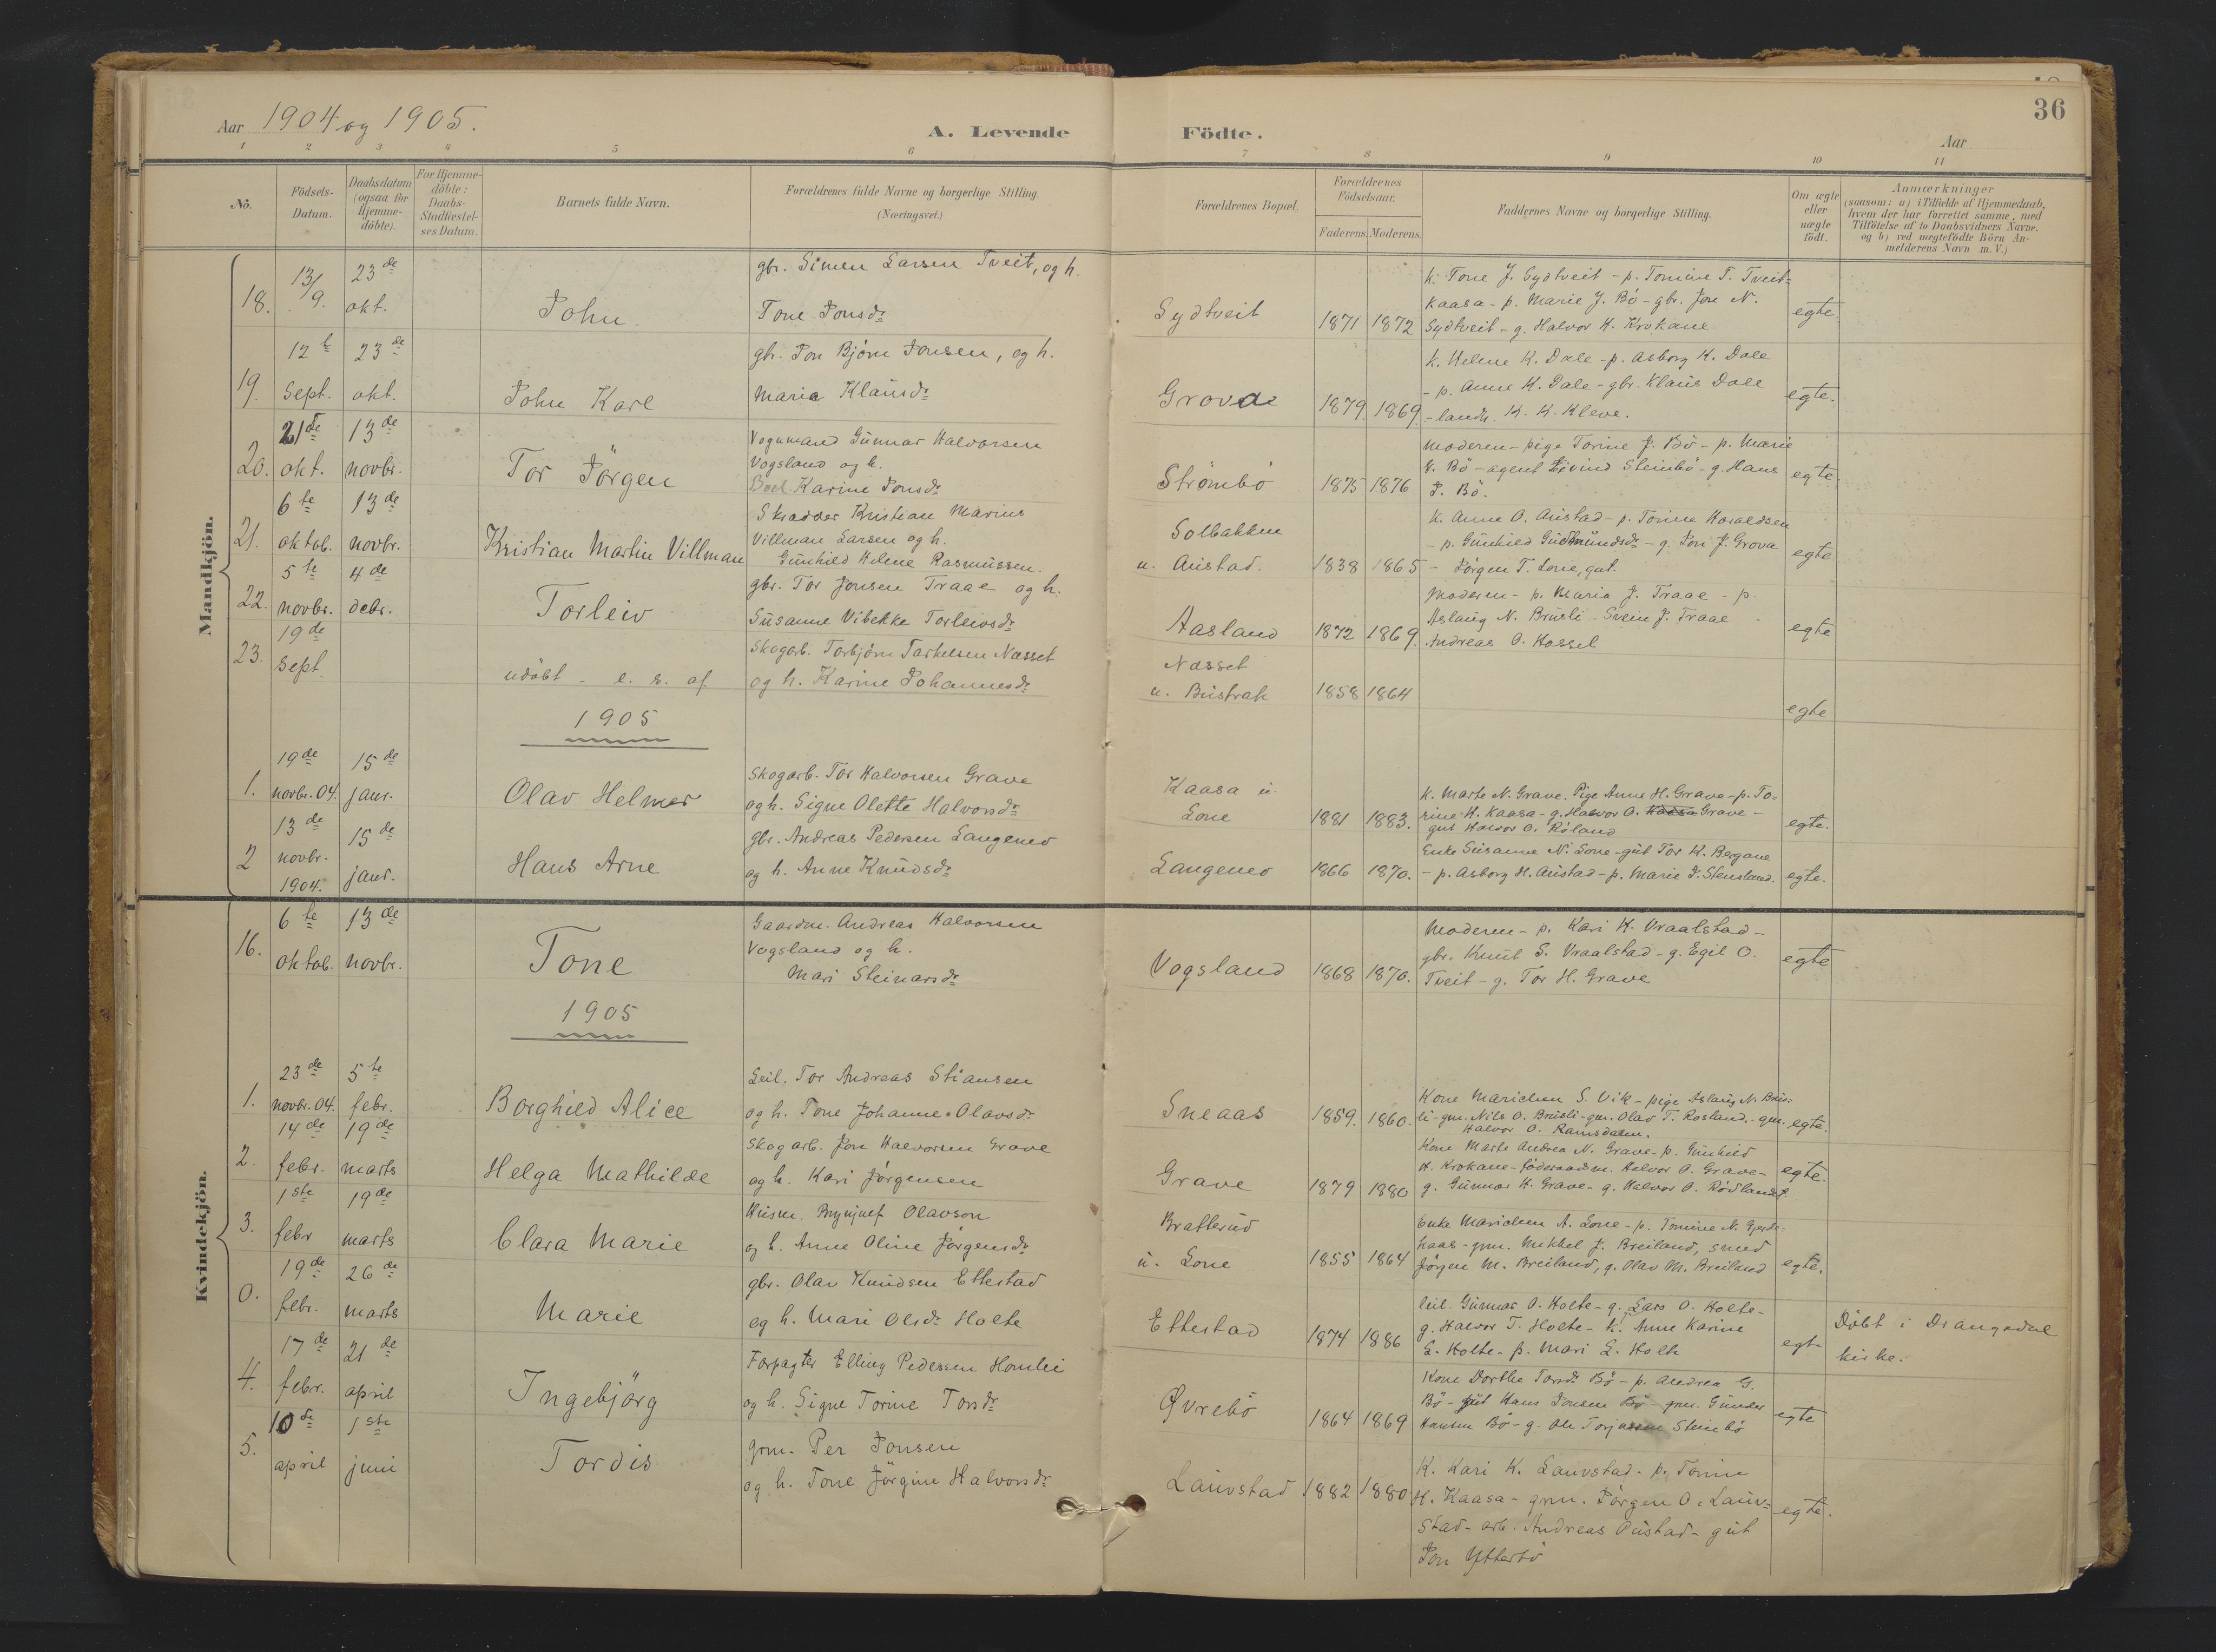 36
Aar 1904 og 1905.
A. Levende Födte.
Aar
1 2 3 4 5 6 7 8 9 10 11
No.
Födsels-Datum.
Daabsdatum (ogsaa for Hjemme-döbte).
For Hjemme-döbte: Daabs-Stadfæstel-ses Datum.
Barnets fulde Navn.
Forældrenes fulde Navne og borgerlige Stilling. (Næringsvei.)
Forældrenes Bopæl.
Forældrenes Födselsaar.
Faderens. Moderens.
Faddernes Navne og borgerlige Stilling.
Om ægte eller uægte födt.
Anmærkninger
(saasom: a) i Tilfælde af Hjemmedaab,
hvem der har forrettet samme, med
Tilföielse af to Daabsvidners Navne.
og b) ved uægtefödte Börn An-
melderens Navn m. V.)
Mandkjön.
18. 13/9. 23de okt. John.
gbr. Simen Larsen Tveit, og h.
Tone Jonsdr
Sydtveit 1871 1872
k. Tone J. Sydtveit - p. Tomine T. Tveit-
kaasa - p. Marie J. Bö - gbr. Jon N.
Sydtveit - g. Halvor H. Krokane
egte.
19. 12te Sept. 23de okt. John Karl
gbr. Jon Björn Jonsen, og h.
Maria Klausdr
Grova 1879. 1869.
k. Helene K. Dale - p. Asborg K. Dale
- p. Anne K. Dale - gbr. Klaus Dale
- landh. K. K. Kleve.
egte.
20. 21de okt. 13de novbr. Tor Jörgen
Vognmand Gunnar Halvorsen
Vogsland og h.
Boel Karine Jonsdr
Strömbö 1875 1876
Moderen - pige Torine J. Bö - p. Marie
K. Bö - agent Eivind Steinbö - g. Hans
J. Bö.
egte.
21. 6te oktob. 13de novbr. Kristian Martin Villman
Skrædder Kristian Marius
Villman Larsen og h.
Gunhild Helene Rasmussen.
Solbakken
u. Austad. 1838 1865
k. Anne O. Austad - p. Torine Haraldsen
- p. Gunhild Gudmundsdr - g. Jon J. Grova
- Jörgen T. Lone, gut.
egte
22. 5te novbr. 4de debr. Torleiv
gbr. Tor Jonsen Traae og h.
Susanne Vibekke Torleivsdr
Aasland 1872 1869.
Moderen - p. Maria J. Traae - p.
Aslaug N. Brusli - Svein J. Traae -
Andreas O. Hassel
egte
23. 19de Sept. udöbt - e. s. af
Skogarb. Torbjörn Tarkelsen Næsset
og h. Karine Johannesdr
Næsset
u. Bustrak 1858 1864
egte
1905
1. 19de novbr. 04. 15de janr. Olav Helmer
Skogarb. Tor Halvorsen Grave
og h. Signe Olette Halvorsdr
Kaasa u.
Lone 1881 1883.
k. Marte N. Grave. Pige Anne H. Grave - p. To-
rine H. Kaasa - g. Halvor O. Kaasa Grave -
gut Halvor O. Röland
egte.
2 13de novbr. 1904. 15de janr. Hans Arne
gbr. Andreas Pedersen Langemo
og h. Anne Knudsdr
Langemo 1866 1870.
Enke Susanne N. Lone - gut Tor K. Bergane
- p. Asborg H. Austad - p. Marie J. Stensland.
egte.
Kvindekjön.
16. 6te oktob. 13de novbr. Tone
Gaardm. Andreas Halvorsen
Vogsland og h.
Mari Steinarsdr
Vogsland 1868 1870.
Moderen - p. Kari K. Vraalstad -
gbr. Knut S. Vraalstad - g. Egil O.
Tveit - g. Tor H. Grave
egte
1905
1. 23de novbr. 04. 5te febr. Borghild Alice
Leil. Tor Andreas Stiansen
og h. Tone Johanne Olavsdr
Sneaas 1859. 1860.
Kone Marichen S. Vik - pige Aslaug N. Brus-
li - gm. Nils O. Brusli - gm. Olav T. Rosland. - gm.
Halvor O. Ramsdalen.
egte.
2. 14de febr. 19de marts Helga Mathilde
Skogarb. Jon Halvorsen Grave
og h. Kari Jörgensen
Grave 1879 1880
Kone Marte Andrea N. Grave - p. Gunhild
H. Krokane - föderaadsm. Halvor O. Grave -
g. Gunnar H. Grave - g. Halvor O. Rödland.
egte.
3. 1ste febr 19de marts Clara Marie
Husm. Brynjulf Olavson
og h. Anne Oline Jörgensdr
Bratterud
u. Lone 1855 1864
Enke Marichen A. Lone - p. Tomine N. Gjerde-
haas - gm. Mikkel J. Breiland, smed
Jörgen M. Breiland, g. Olav M. Breiland
egte.
0. 19de febr. 26de marts Marie
gbr. Olav Knudsen Ettestad
og h. Mari Olsdr Holte
Ettestad 1874 1886
leil. Gunnar O. Holte - g. Lars O. Holte -
g. Halvor T. Holte - k. Anne Karine
L. Holte - p. Mari L. Holte
egte
Döbt i Drangedal
kirke.
4. 17de febr. 21de april Ingebjörg
Forpagter Elling Pedersen Homlei
og h. Signe Torine Torsdr
Øvrebö 1864 1869
Kone Dorthe Torsdr Bö - p. Andrea G.
Bö - gut Hans Jonsen Bö gm. Gunder
Hansen Bö - g. Ole Torjussen Steinbö
egte
5. 10de april 1ste juni Tordis
grm. Per Jonsen
og h. Tone Jörgine Halvorsdr
Lauvstad 1882 1880
K. Kari K. Lauvstad - p. Torine
H. Kaasa - grm. Jörgen O. Lauv-
stad - arb. Andreas Pustad - gut
Jon Ytterbö
egte.